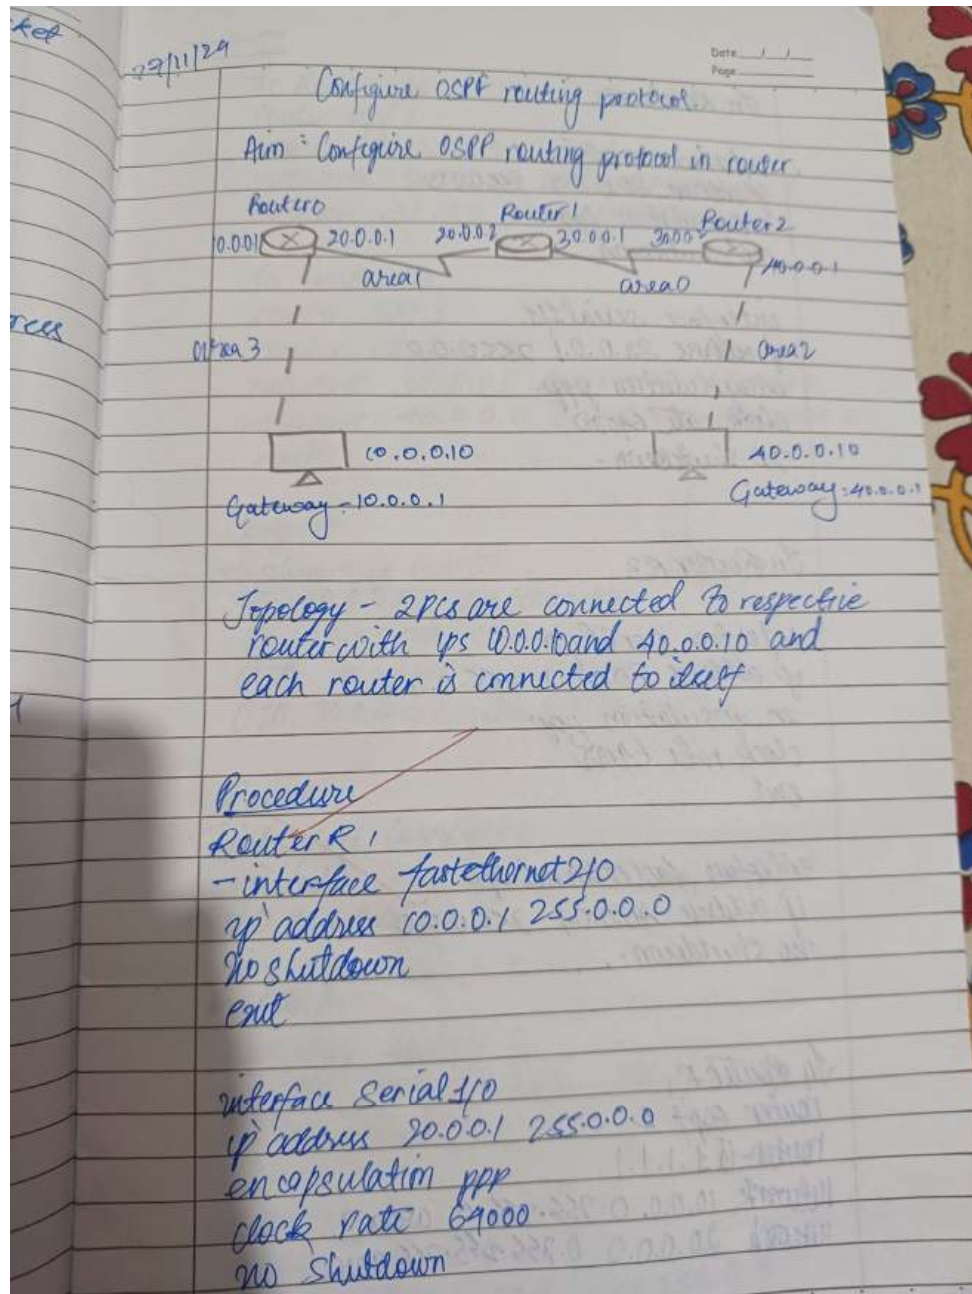 ket
Date
Page
Configure OSPF routing protocol.
Aim : Configure OSPF routing protocol in router.
Router0 Router1 Router2
20.0.0.1 20.0.0.2 30.0.0.1
40.0.0.1
area1 area0
area 3 area2
10.0.0.10 40.0.0.10
Gateway - 10.0.0.1 Gateway : 40.0.0.1
Topology - 2PCs are connected to respective
router with ips 10.0.0.10 and 40.0.0.10 and
each router is connected to itself
Procedure
Router R1
- interface fastethernet 2/0
ip address 10.0.0.1 255.0.0.0
no shutdown
exit
interface Serial 1/0
ip address 20.0.0.1 255.0.0.0
encapsulation ppp
clock rate 64000
no shutdown